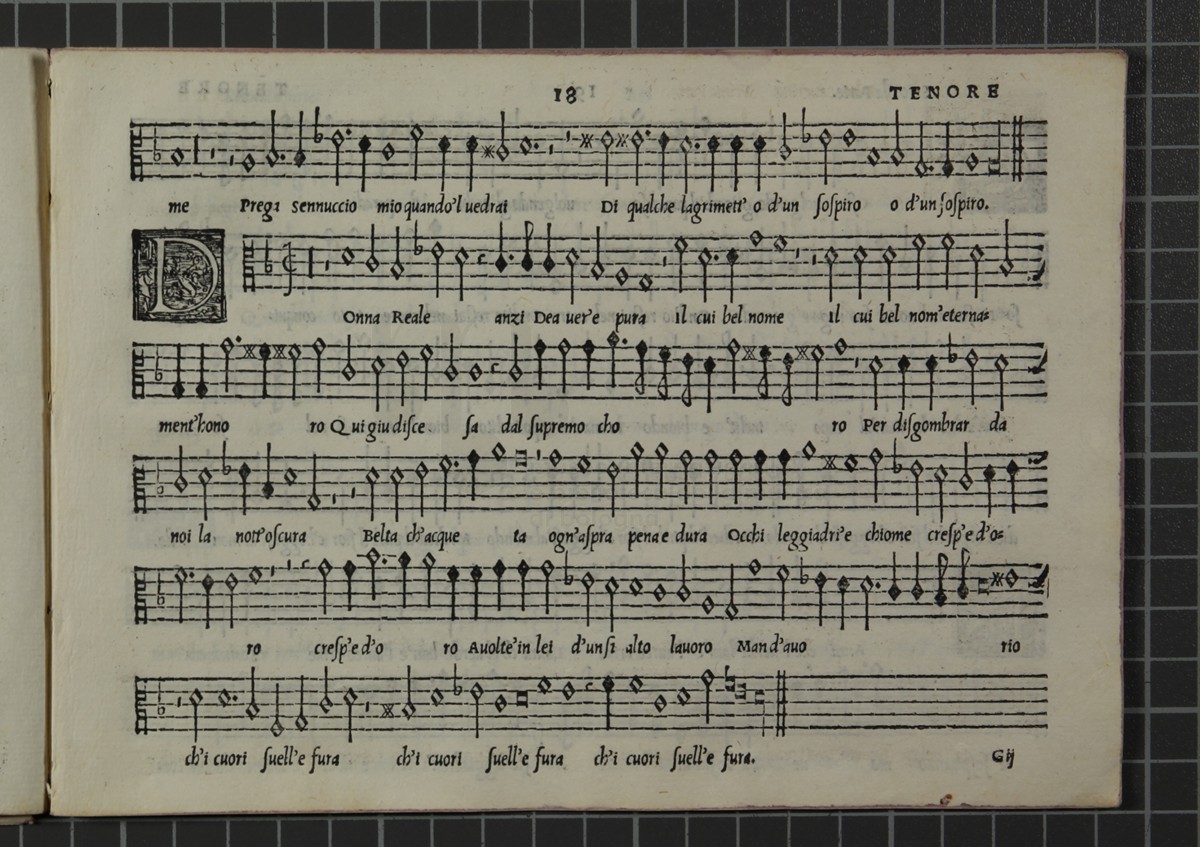 18 TENORE
me Prega sennuccio mio quando'l uedrai Di qualche lagrimett' o d'un ſoſpiro o d'un ſoſpiro.
D Onna Reale anzi Dea uer'e pura il cui bel nome il cui bel nom'eterna=
ment'hono ro Qui giudiſce ſa dal ſupremo cho ro Per diſgombrar da
noi la nott'oſcura Belta ch'acque ta ogn'aſpra pena e dura Occhi leggiadri'e chiome creſp'e d'o=
ro creſp'e d'o ro Auolte'in lei d'un ſi alto lauoro Man d'auo rio
ch'i cuori ſuell'e fura ch'i cuori ſuell'e fura ch'i cuori ſuell'e fura.
G ij